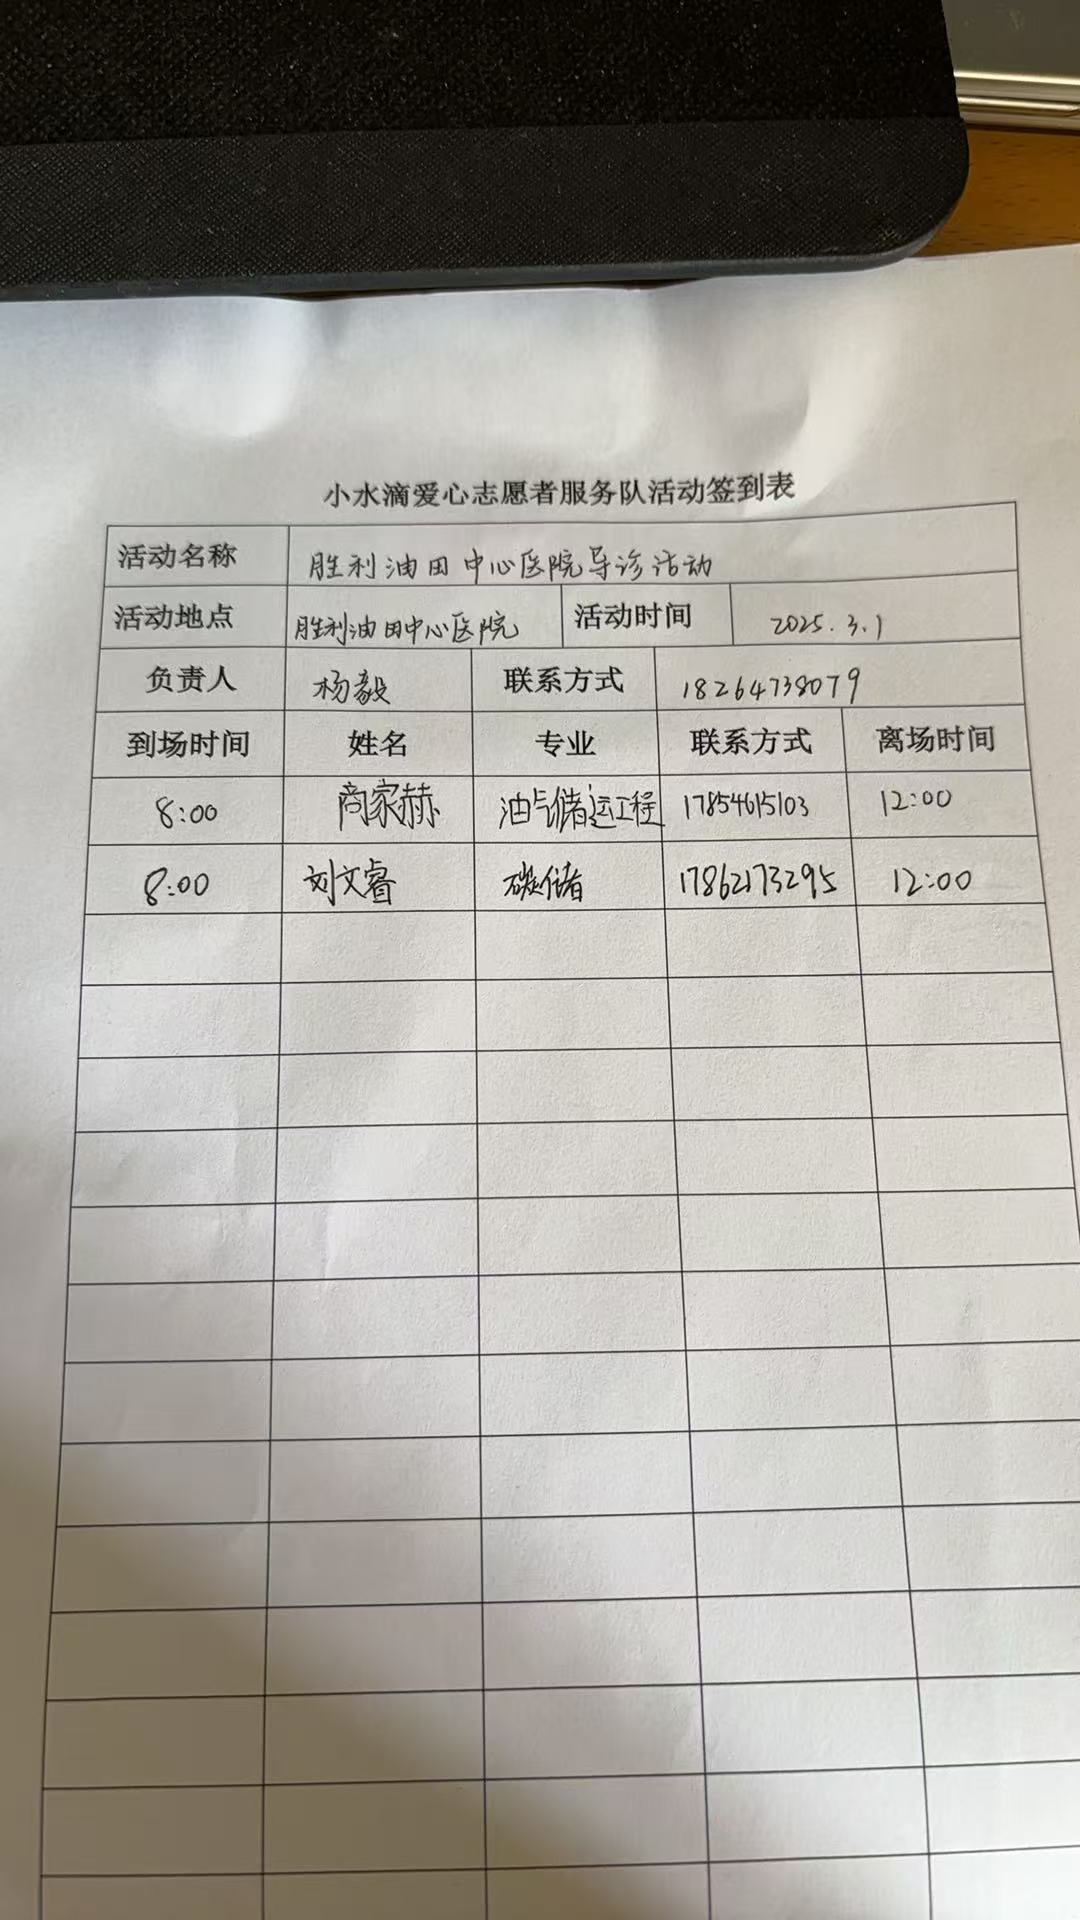 小水滴爱心志愿者服务队活动签到表
活动名称 胜利油田中心医院导诊活动
活动地点 胜利油田中心医院 活动时间 2025.3.1
负责人 杨毅 联系方式 18264738079
到场时间 姓名 专业 联系方式 离场时间
8:00 商家赫 油气储运工程 17854615103 12:00
8:00 刘文睿 碳储 17862173295 12:00